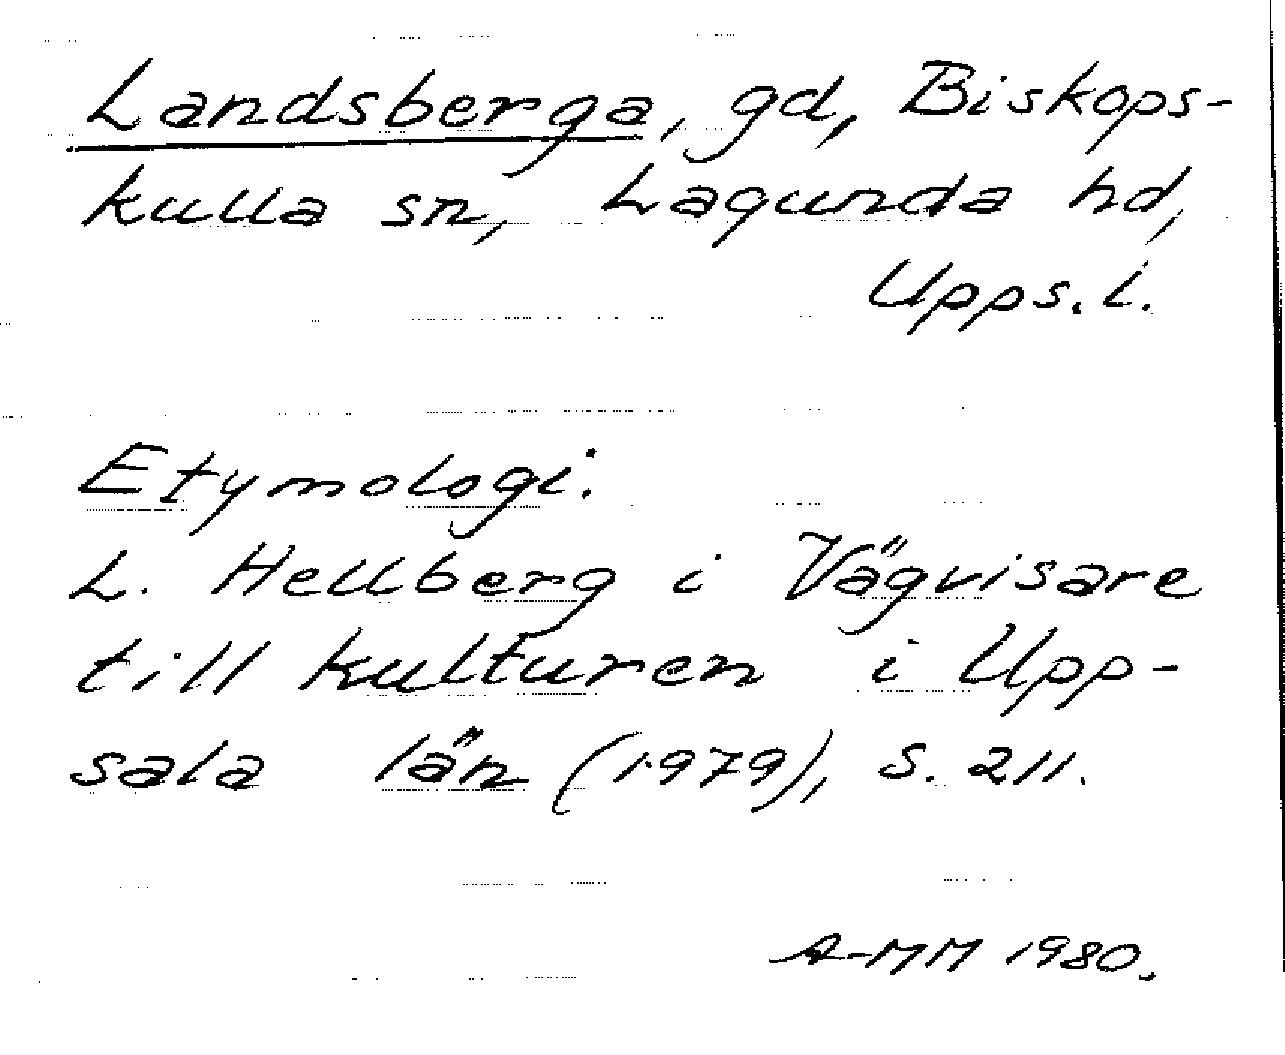 Landsberga, gd, Biskops-
kulla sn, Lagunda hd,
Upps. l.
Etymologi:
L. Hellberg i Vägvisare
till kulturen i Upp-
sala län (1979), s. 211.
A-MM 1980.